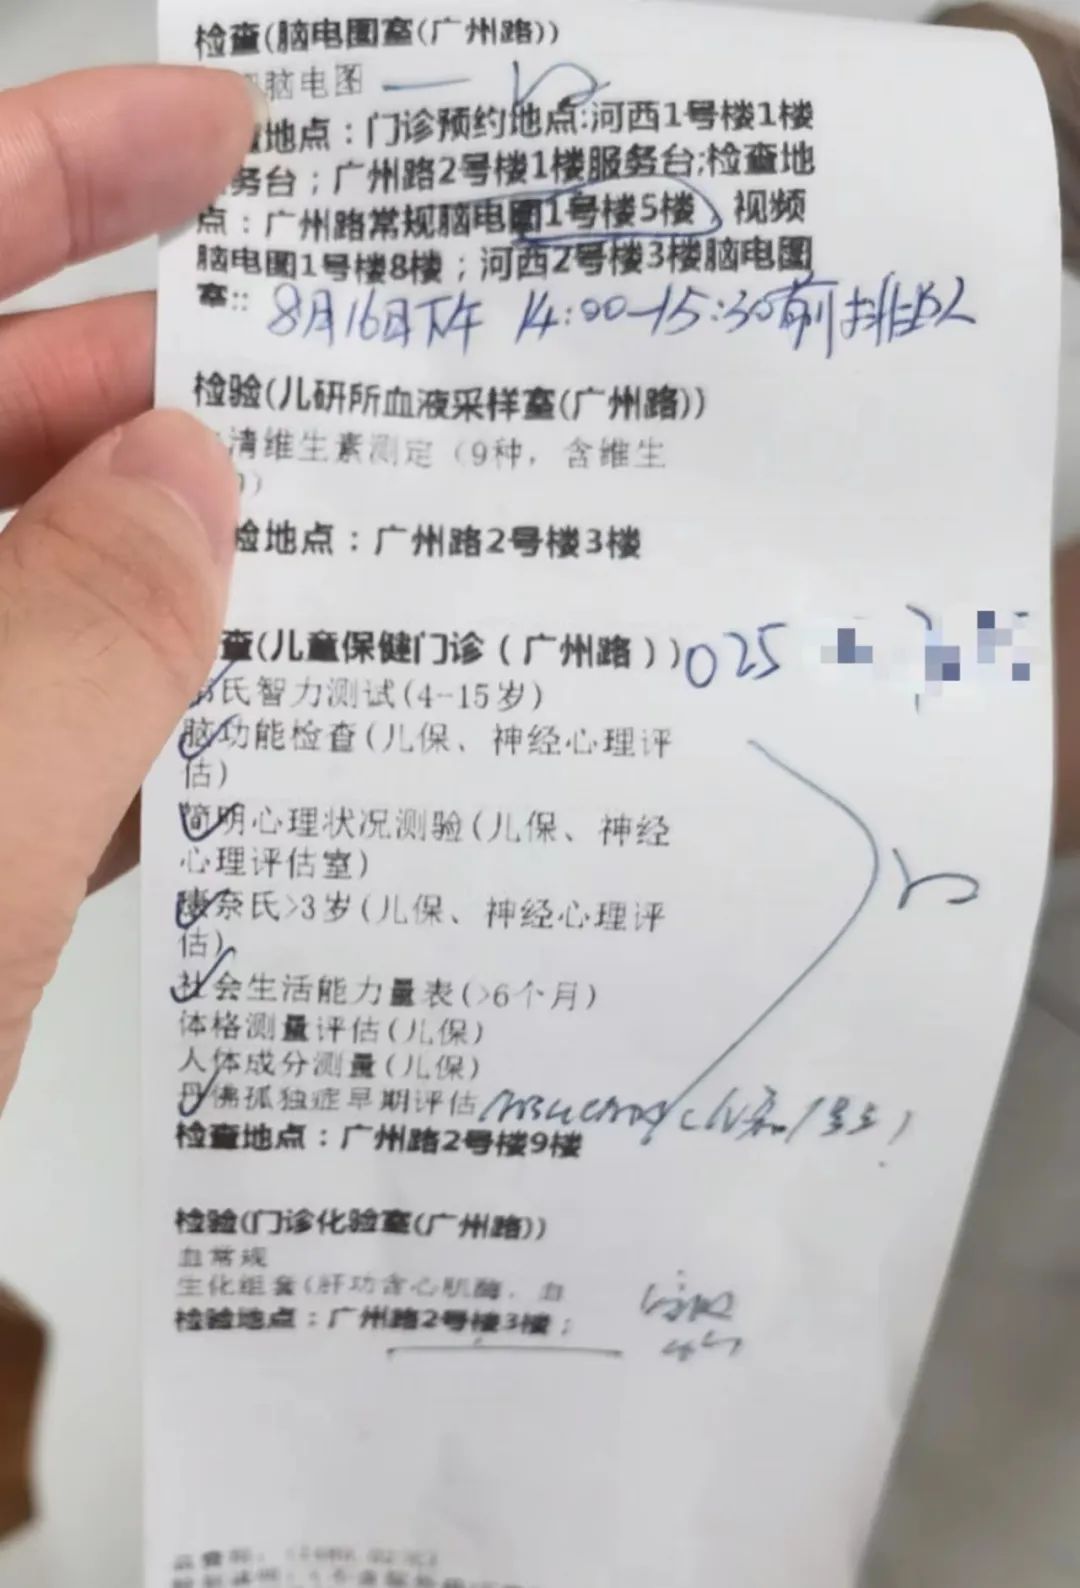 检查(脑电图室(广州路))
脑电图
地点：门诊预约地点:河西1号楼1楼
务台；广州路2号楼1楼服务台;检查地
点：广州路常规脑电图1号楼5楼，视频
脑电图1号楼8楼；河西2号楼3楼脑电图
室::
8月16日下午 14:00-15:30前排队
检验(儿研所血液采样室(广州路))
清维生素测定（9种，含维生
)
检地点：广州路2号楼3楼
查(儿童保健门诊（广州路）)025
氏智力测试(4-15岁)
脑功能检查(儿保、神经心理评
估)
简明心理状况测验(儿保、神经
心理评估室)
康奈氏>3岁(儿保、神经心理评
估)
社会生活能力量表(>6个月)
体格测量评估(儿保)
人体成分测量(儿保)
丹佛孤独症早期评估
检查地点：广州路2号楼9楼
检验(门诊化验室(广州路))
血常规
生化组套(肝功含心肌酶、血
检验地点：广州路2号楼3楼；